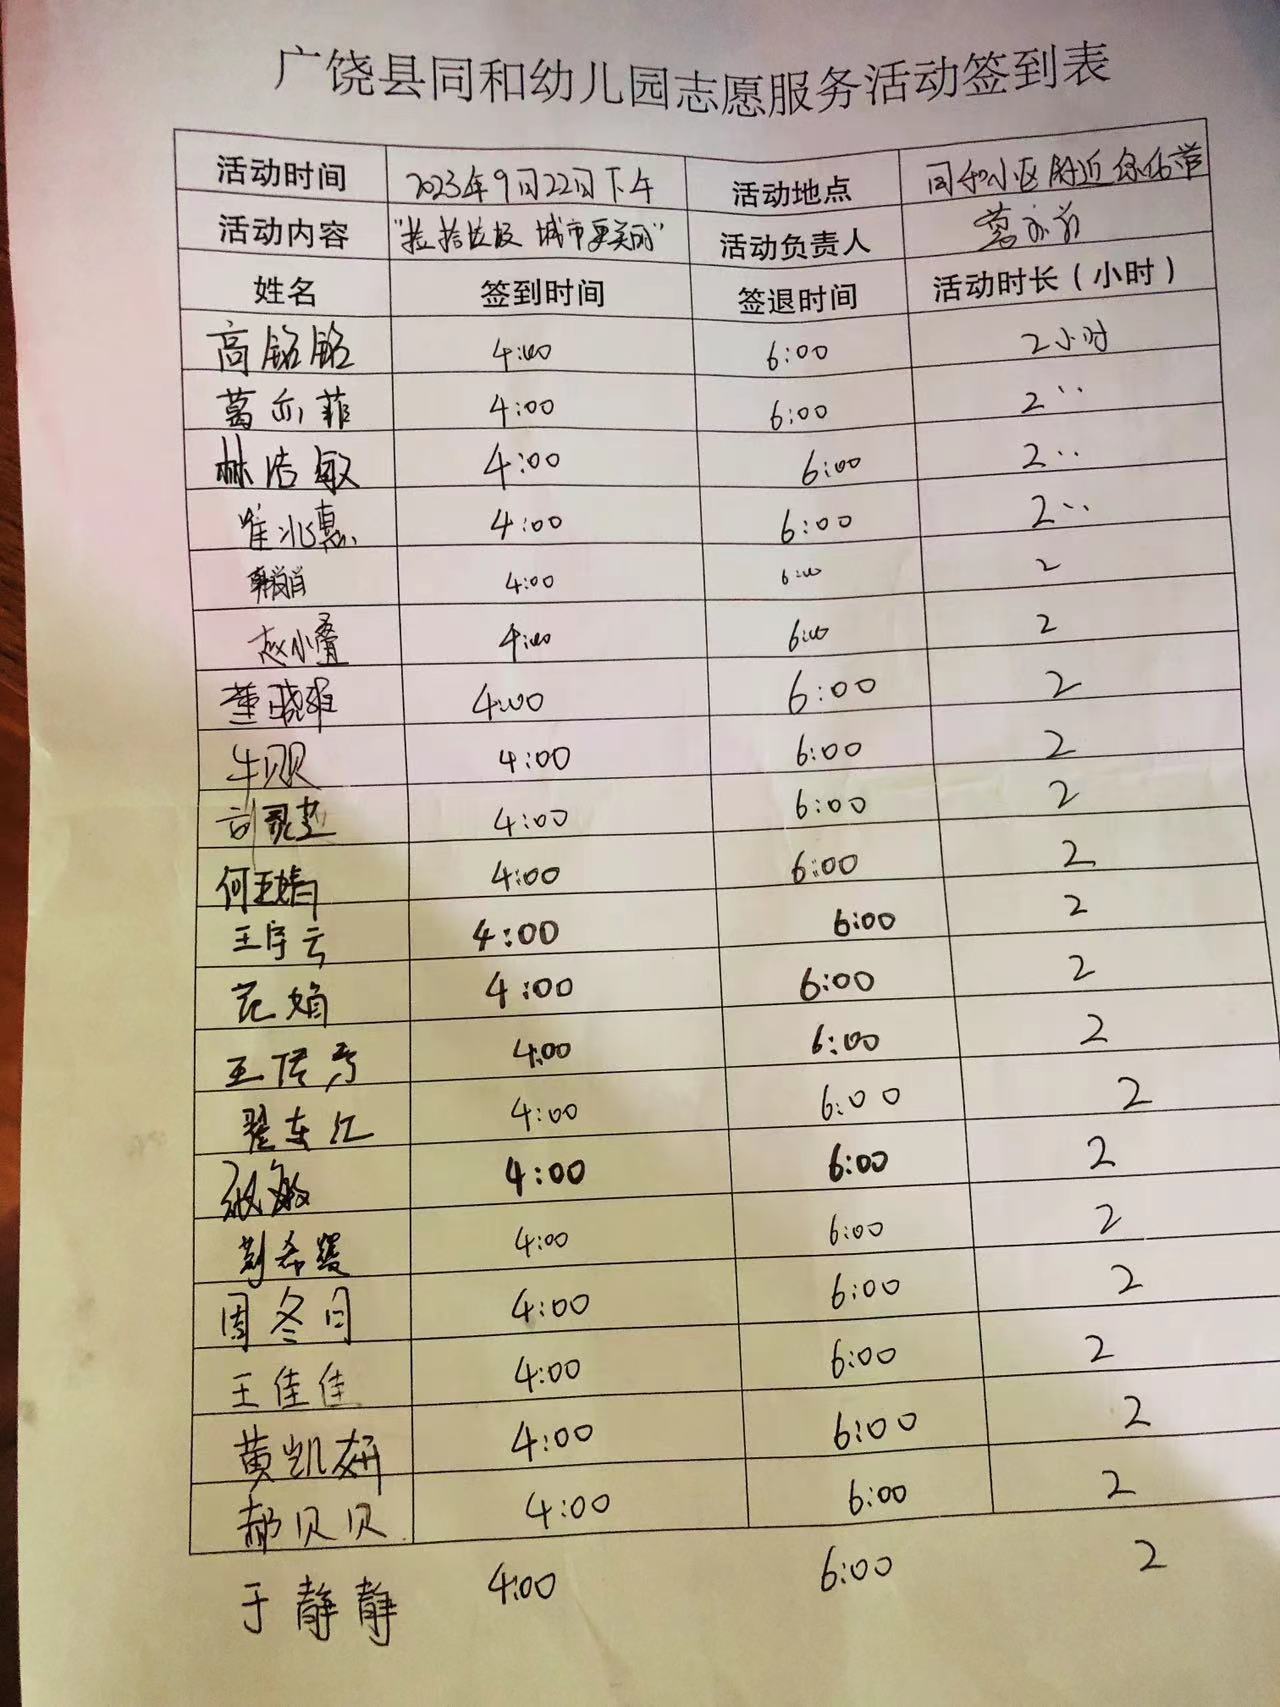 广饶县同和幼儿园志愿服务活动签到表
活动时间 2023年9月22日下午 活动地点 同和小区附近绿化带
活动内容 "捡拾垃圾 城市更美丽" 活动负责人 葛亦菲
姓名 签到时间 签退时间 活动时长（小时）
高铭铭 4:00 6:00 2小时
葛亦菲 4:00 6:00 2〃
林洁敏 4:00 6:00 2〃
崔兆惠 4:00 6:00 2〃
韩肖肖 4:00 6:00 2
赵小叠 4:00 6:00 2
董晓雅 4:00 6:00 2
牛贝贝 4:00 6:00 2
4:00 6:00 2
何玉婧 4:00 6:00 2
王宇云 4:00 6:00 2
范娟 4:00 6:00 2
4:00 6:00 2
翟东红 4:00 6:00 2
张敏 4:00 6:00 2
4:00 6:00 2
周冬月 4:00 6:00 2
王佳佳 4:00 6:00 2
黄凯妍 4:00 6:00 2
郝贝贝 4:00 6:00 2
于静静 4:00 6:00 2